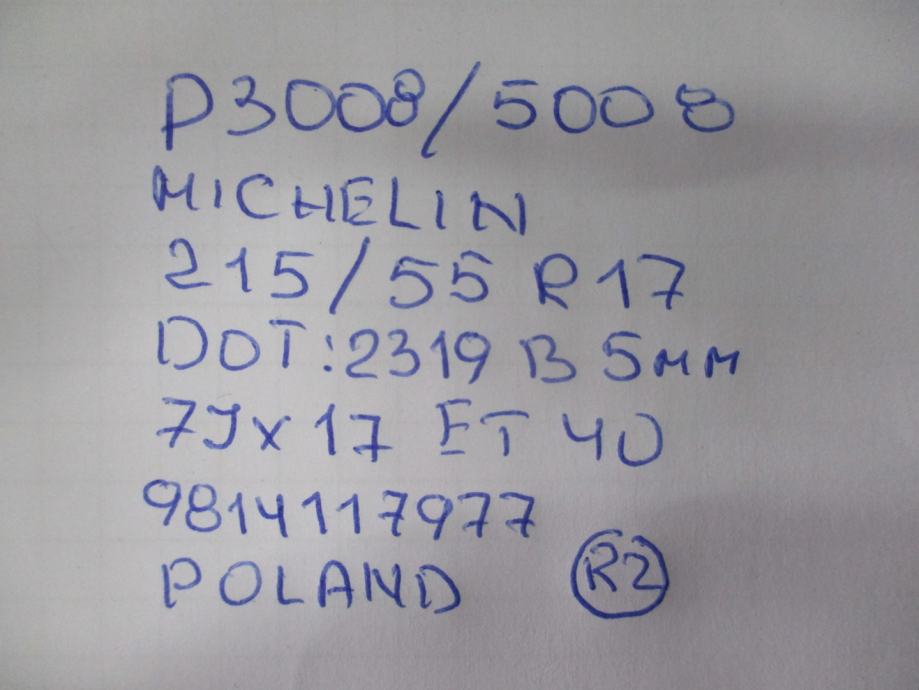 P3008/5008
MICHELIN
215/55 R17
DOT:2319 B 5мм
7Jx17 ET 40
9814117977
POLAND R2